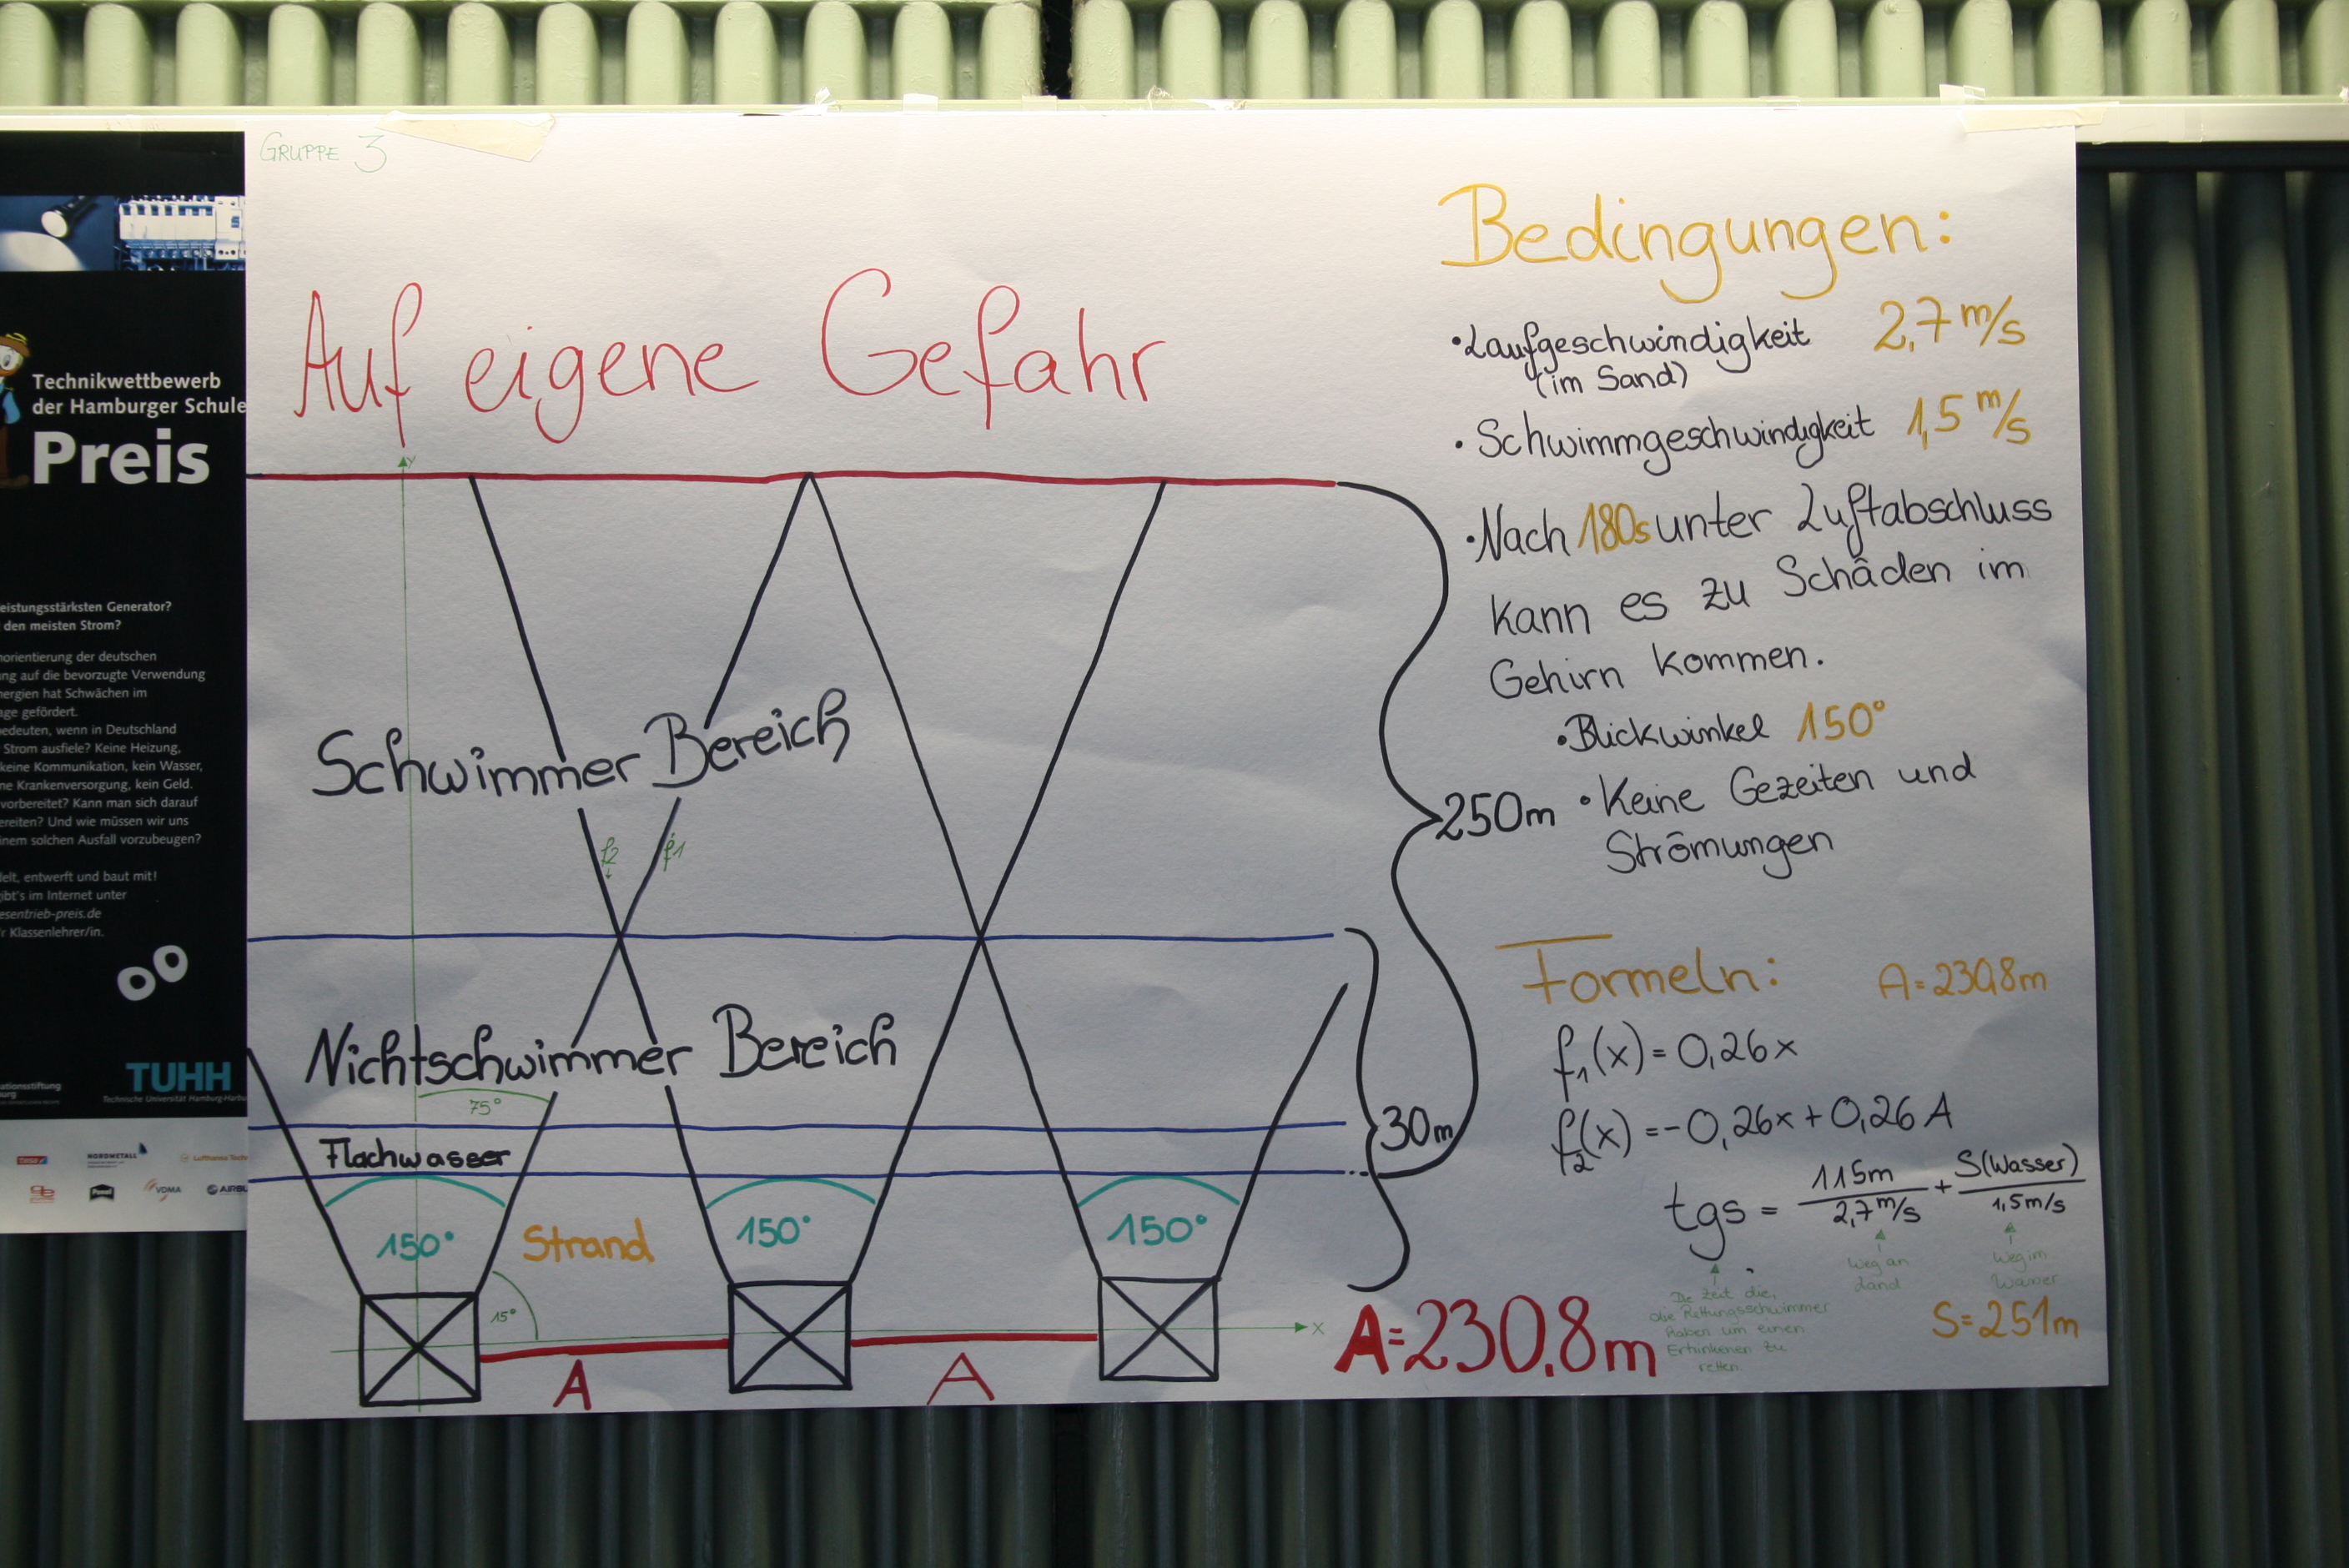 GRUPPE 3
Auf eigene Gefahr
Y
Schwimmer Bereich
f2
f1
Nichtschwimmer Bereich
75°
Flachwasser
150°
Strand
150°
150°
15°
X
A
A
A=230,8m
250m
30m
Bedingungen:
•Laufgeschwindigkeit 2,7 m/s
(im Sand)
• Schwimmgeschwindigkeit 1,5 m/s
•Nach 180s unter Luftabschluss
kann es zu Schäden im
Gehirn kommen.
•Blickwinkel 150°
•Keine Gezeiten und
Strömungen
Formeln: A=230,8m
f₁(x) = 0,26x
f₂(x) = -0,26x + 0,26 A
tgs = 115m / 2,7 m/s + S(Wasser) / 1,5 m/s
Weg an
Land
Weg im
Wasser
Die Zeit die,
die Rettungsschwimmer
haben um einen
Ertrinkenen zu
retten.
S=251m
Technikwettbewerb
der Hamburger Schule
Preis
eistungsstärksten Generator?
den meisten Strom?
norientierung der deutschen
ng auf die bevorzugte Verwendung
nergien hat Schwächen im
age gefördert.
bedeuten, wenn in Deutschland
Strom ausfiele? Keine Heizung,
keine Kommunikation, kein Wasser,
ne Krankenversorgung, kein Geld.
vorbereitet? Kann man sich darauf
ereiten? Und wie müssen wir uns
inem solchen Ausfall vorzubeugen?
elt, entwerft und baut mit!
ibt's im Internet unter
esentrieb-preis.de
r Klassenlehrer/in.
TUHH
Technische Universität Hamburg-Harbu
ationsstiftung
burg
NORDMETALL
Lufthansa Techn
VDMA
AIRBU